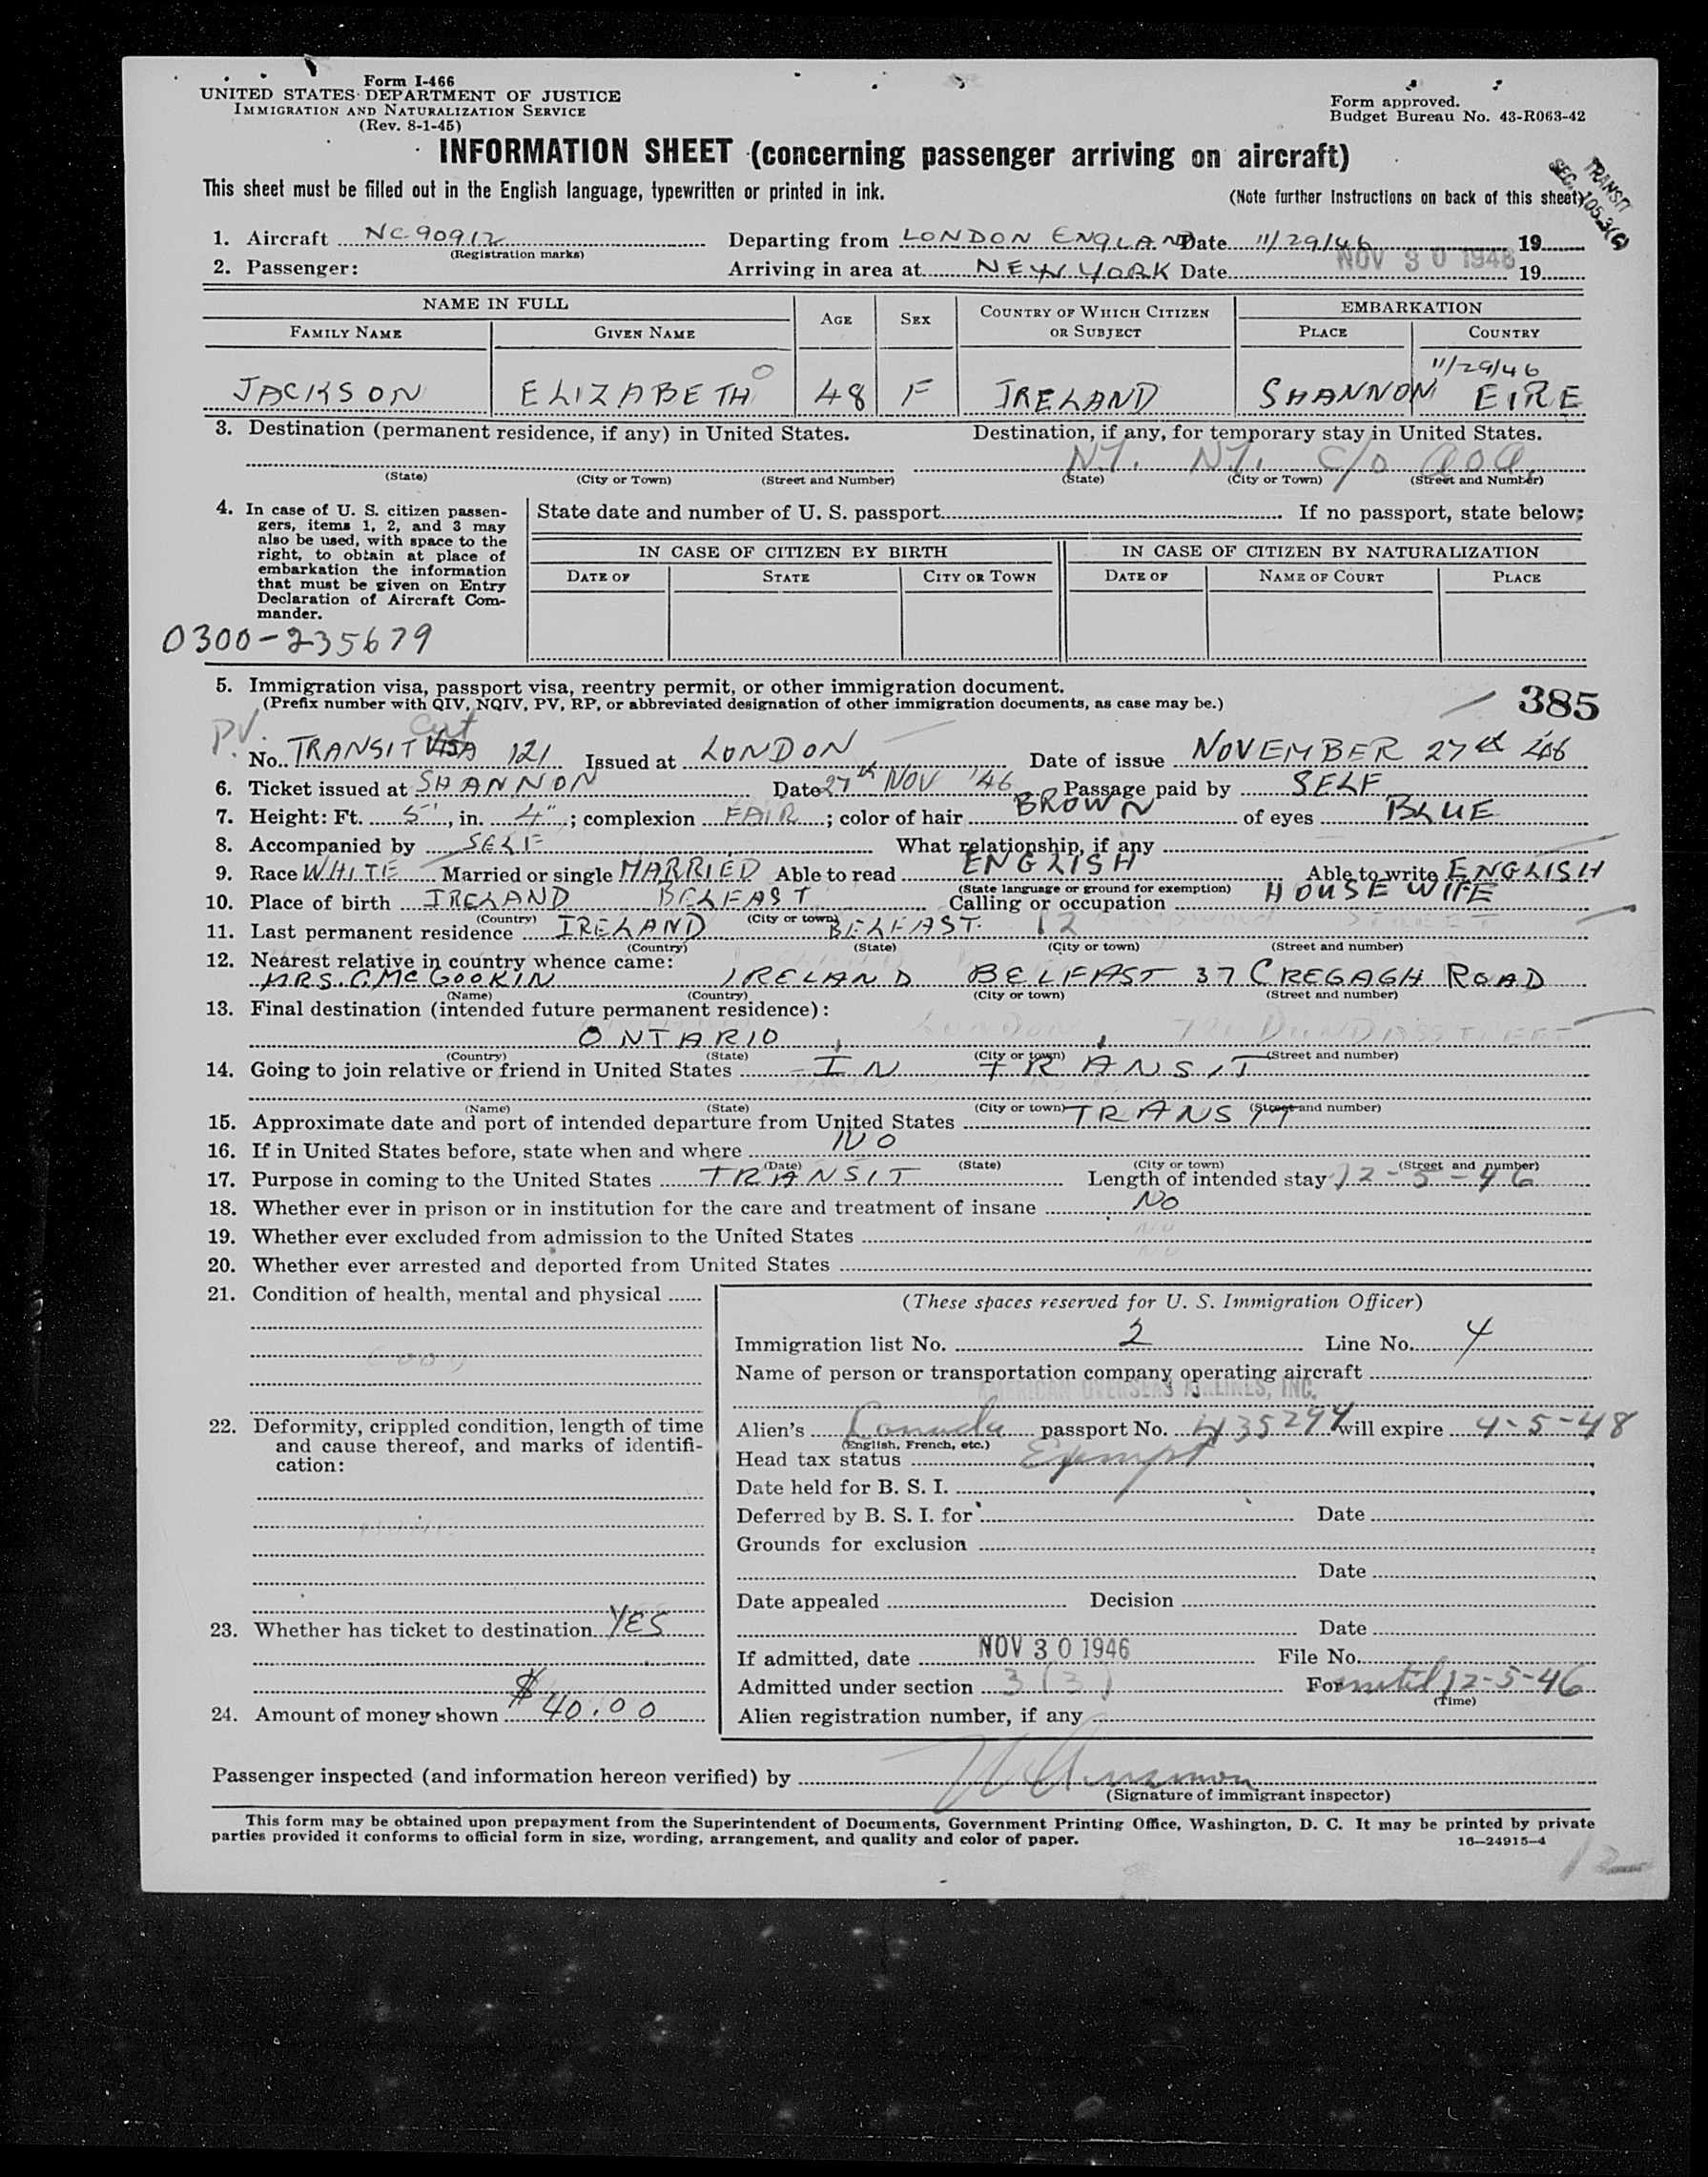 Form I-466
UNITED STATES DEPARTMENT OF JUSTICE
IMMIGRATION AND NATURALIZATION SERVICE
(Rev. 8-1-45)
Form approved.
Budget Bureau No. 43-R063-42
INFORMATION SHEET (concerning passenger arriving on aircraft)
TRANSIT
SEC. 105.3(c)
This sheet must be filled out in the English language, typewritten or printed in ink. (Note further instructions on back of this sheet)
1. Aircraft NC 90912 Departing from LONDON ENGLAND Date 11/29/46 19
(Registration marks)
2. Passenger: Arriving in area at NEW YORK Date NOV 30 1946 19
NAME IN FULL AGE SEX COUNTRY OF WHICH CITIZEN OR SUBJECT EMBARKATION
FAMILY NAME GIVEN NAME PLACE COUNTRY
11/29/46
JACKSON ELIZABETH 48 F IRELAND SHANNON EIRE
3. Destination (permanent residence, if any) in United States. Destination, if any, for temporary stay in United States.
N.Y. N.Y. c/o AOA
(State) (City or Town) (Street and Number) (State) (City or Town) (Street and Number)
4. In case of U. S. citizen passengers, items 1, 2, and 3 may also be used, with space to the right, to obtain at place of embarkation the information that must be given on Entry Declaration of Aircraft Commander.
State date and number of U. S. passport If no passport, state below:
IN CASE OF CITIZEN BY BIRTH IN CASE OF CITIZEN BY NATURALIZATION
DATE OF STATE CITY OR TOWN DATE OF NAME OF COURT PLACE
0300-235679
5. Immigration visa, passport visa, reentry permit, or other immigration document.
(Prefix number with QIV, NQIV, PV, RP, or abbreviated designation of other immigration documents, as case may be.)
385
PV. Cert
No. TRANSIT VISA 121 Issued at LONDON Date of issue NOVEMBER 27th 46
6. Ticket issued at SHANNON Date 27th NOV '46 Passage paid by SELF
7. Height: Ft. 5', in. 4"; complexion FAIR; color of hair BROWN of eyes BLUE
8. Accompanied by SELF What relationship, if any
9. Race WHITE Married or single MARRIED Able to read ENGLISH Able to write ENGLISH
(State language or ground for exemption)
10. Place of birth IRELAND BELFAST Calling or occupation HOUSE WIFE
(Country) (City or town)
11. Last permanent residence IRELAND BELFAST 12 STREET
(Country) (State) (City or town) (Street and number)
12. Nearest relative in country whence came:
MRS. C. MCGOOKIN IRELAND BELFAST 37 CREGAGH ROAD
(Name) (Country) (City or town) (Street and number)
13. Final destination (intended future permanent residence):
ONTARIO, LONDON, DUNDAS STREET
(Country) (State) (City or town) (Street and number)
14. Going to join relative or friend in United States IN TRANSIT
(Name) (State) (City or town) (Street and number)
15. Approximate date and port of intended departure from United States TRANSIT
16. If in United States before, state when and where NO
(Date) (State) (City or town) (Street and number)
17. Purpose in coming to the United States TRANSIT Length of intended stay 12-5-46
18. Whether ever in prison or in institution for the care and treatment of insane NO
19. Whether ever excluded from admission to the United States NO
20. Whether ever arrested and deported from United States NO
21. Condition of health, mental and physical
GOOD
22. Deformity, crippled condition, length of time and cause thereof, and marks of identification:
23. Whether has ticket to destination YES
24. Amount of money shown $40.00
(These spaces reserved for U. S. Immigration Officer)
Immigration list No. 2 Line No. 4
Name of person or transportation company operating aircraft
AMERICAN OVERSEAS AIRLINES, INC.
Alien's Canada passport No. will expire 4-5-48
(English, French, etc.)
Head tax status Exempt
Date held for B. S. I.
Deferred by B. S. I. for Date
Grounds for exclusion
Date
Date appealed Decision
Date
If admitted, date NOV 30 1946 File No.
Admitted under section 3(3) For until 12-5-46
(Time)
Alien registration number, if any
Passenger inspected (and information hereon verified) by
(Signature of immigrant inspector)
This form may be obtained upon prepayment from the Superintendent of Documents, Government Printing Office, Washington, D. C. It may be printed by private
parties provided it conforms to official form in size, wording, arrangement, and quality and color of paper. 16-24915-4
12